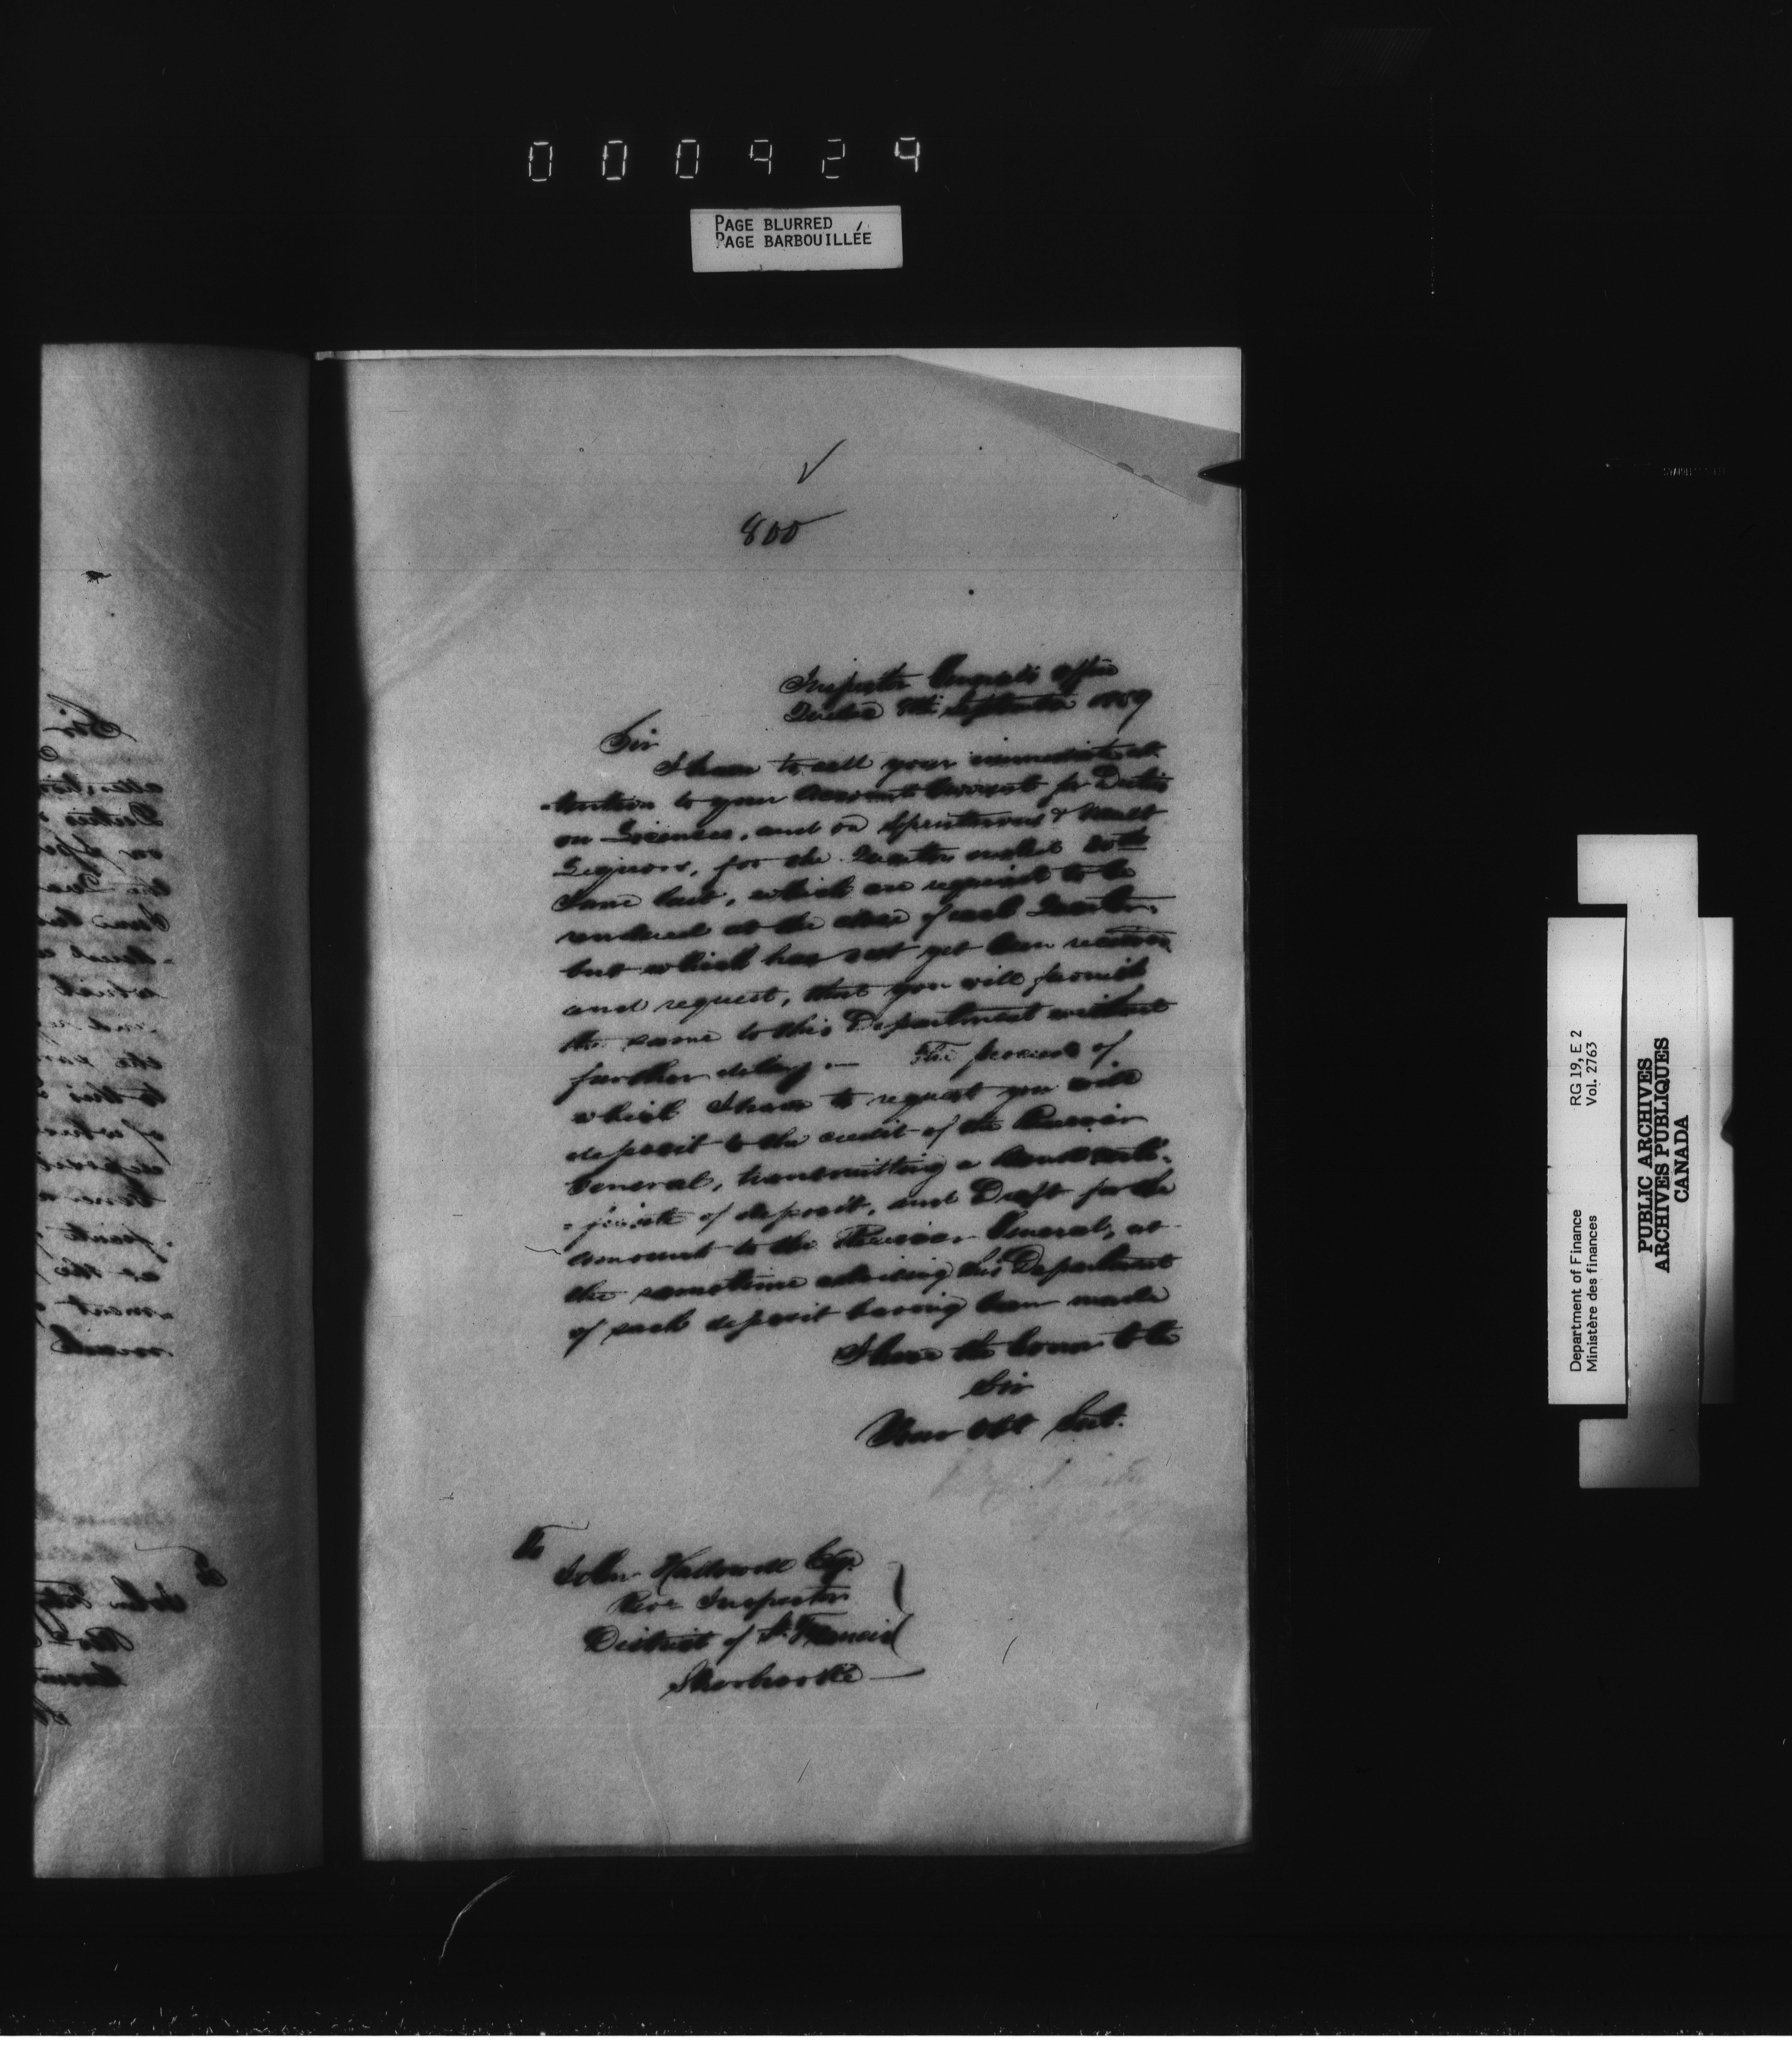 000924
PAGE BLURRED
PAGE BARBOUILLÉE
800
Inspector General's Office
Quebec 8th September 1859
Sir
I have to call your immediate at
-tention to your Accounts Current for Duties
on Licenses, and on Spirituous & Malt
Liquors, for the Quarter ended 30th
June last, which are required to be
rendered at the close of each Quarter,
but which has not yet been received,
and request, that you will furnish
the same to this Department without
further delay. — The proceeds of
which I have to request you will
deposit to the credit of the Receiver
General, transmitting a Bank certi-
-ficate of deposit, and Draft for the
amount to the Receiver General, at
the sametime advising this Department
of such deposit having been made
I have the honor to be
Sir
Your Obt Servt.
To
John Hallowell Esq.
Revr Inspector
District of St. Francis
Sherbrooke
RG 19, E 2
Vol. 2763
Department of Finance
Ministère des finances
PUBLIC ARCHIVES
ARCHIVES PUBLIQUES
CANADA